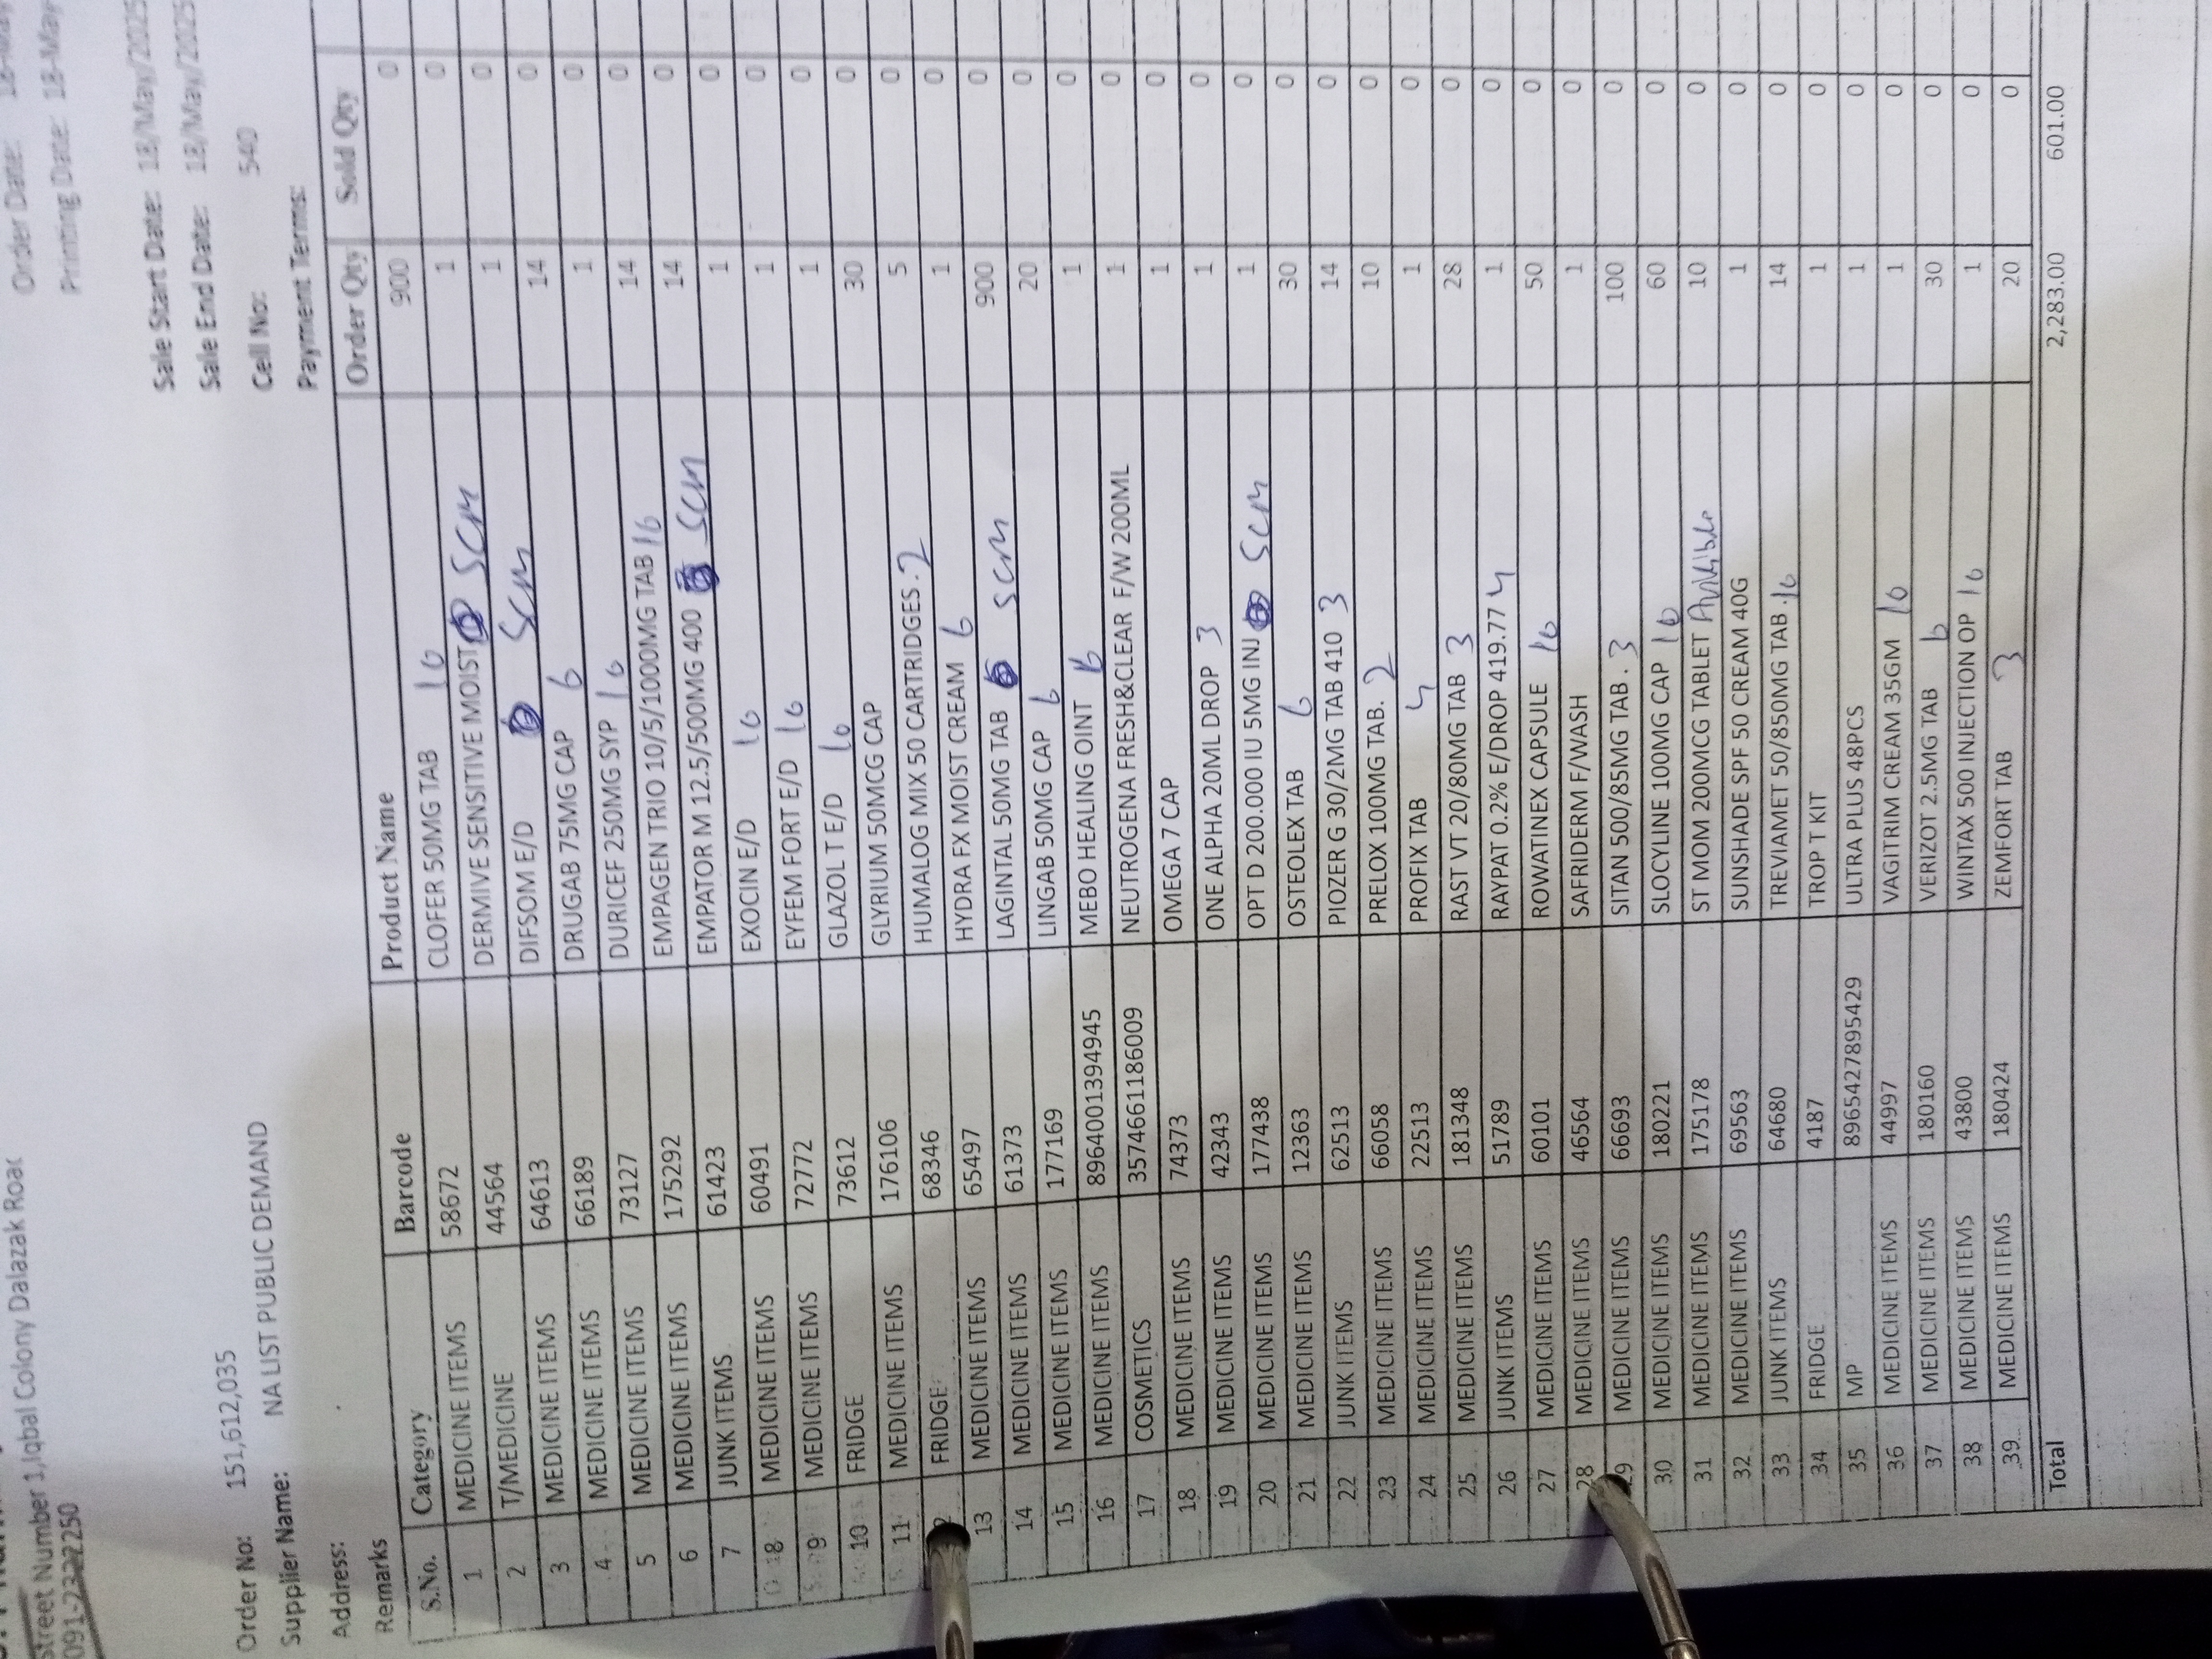 Order Date: 18-May
Printing Date: 18-May
Street Number 1,Iqbal Colony Dalazak Road
091-2322250
Sale Start Date: 18/May/2025
Order No: 151,612,035 Sale End Date: 18/May/2025
Supplier Name: NA LIST PUBLIC DEMAND Cell No: 540
Address: Payment Terms:
Remarks
S.No. Category Barcode Product Name Order Qty Sold Qty
1 MEDICINE ITEMS 58672 CLOFER 50MG TAB 10 900 0
2 T/MEDICINE 44564 DERMIVE SENSITIVE MOIST SCM 1 0
3 MEDICINE ITEMS 64613 DIFSOM E/D SCM 1 0
4 MEDICINE ITEMS 66189 DRUGAB 75MG CAP 6 14 0
5 MEDICINE ITEMS 73127 DURICEF 250MG SYP 10 1 0
6 MEDICINE ITEMS 175292 EMPAGEN TRIO 10/5/1000MG TAB 10 14 0
7 JUNK ITEMS 61423 EMPATOR M 12.5/500MG 400 SCM 14 0
8 MEDICINE ITEMS 60491 EXOCIN E/D 10 1 0
9 MEDICINE ITEMS 72772 EYFEM FORT E/D 10 1 0
10 FRIDGE 73612 GLAZOL T E/D 10 1 0
11 MEDICINE ITEMS 176106 GLYRIUM 50MCG CAP 30 0
FRIDGE 68346 HUMALOG MIX 50 CARTRIDGES. 2 5 0
13 MEDICINE ITEMS 65497 HYDRA FX MOIST CREAM 6 1 0
14 MEDICINE ITEMS 61373 LAGINTAL 50MG TAB SCM 900 0
15 MEDICINE ITEMS 177169 LINGAB 50MG CAP 6 20 0
16 MEDICINE ITEMS 8964001394945 MEBO HEALING OINT 6 1 0
17 COSMETICS 3574661186009 NEUTROGENA FRESH&CLEAR F/W 200ML 1 0
18 MEDICINE ITEMS 74373 OMEGA 7 CAP 1 0
19 MEDICINE ITEMS 42343 ONE ALPHA 20ML DROP 3 1 0
20 MEDICINE ITEMS 177438 OPT D 200.000 IU 5MG INJ SCM 1 0
21 MEDICINE ITEMS 12363 OSTEOLEX TAB 6 30 0
22 JUNK ITEMS 62513 PIOZER G 30/2MG TAB 410 3 14 0
23 MEDICINE ITEMS 66058 PRELOX 100MG TAB. 2 10 0
24 MEDICINE ITEMS 22513 PROFIX TAB 4 1 0
25 MEDICINE ITEMS 181348 RAST VT 20/80MG TAB 3 28 0
26 JUNK ITEMS 51789 RAYPAT 0.2% E/DROP 419.77 4 1 0
27 MEDICINE ITEMS 60101 ROWATINEX CAPSULE 10 50 0
28 MEDICINE ITEMS 46564 SAFRIDERM F/WASH 1 0
29 MEDICINE ITEMS 66693 SITAN 500/85MG TAB. 3 100 0
30 MEDICINE ITEMS 180221 SLOCYLINE 100MG CAP 10 60 0
31 MEDICINE ITEMS 175178 ST MOM 200MCG TABLET 10 0
32 MEDICINE ITEMS 69563 SUNSHADE SPF 50 CREAM 40G 1 0
33 JUNK ITEMS 64680 TREVIAMET 50/850MG TAB. 10 14 0
34 FRIDGE 4187 TROP T KIT 1 0
35 MP 8965427895429 ULTRA PLUS 48PCS 1 0
36 MEDICINE ITEMS 44997 VAGITRIM CREAM 35GM 10 1 0
37 MEDICINE ITEMS 180160 VERIZOT 2.5MG TAB 6 30 0
38 MEDICINE ITEMS 43800 WINTAX 500 INJECTION OP 10 1 0
39 MEDICINE ITEMS 180424 ZEMFORT TAB 3 20 0
Total 2,283.00 601.00